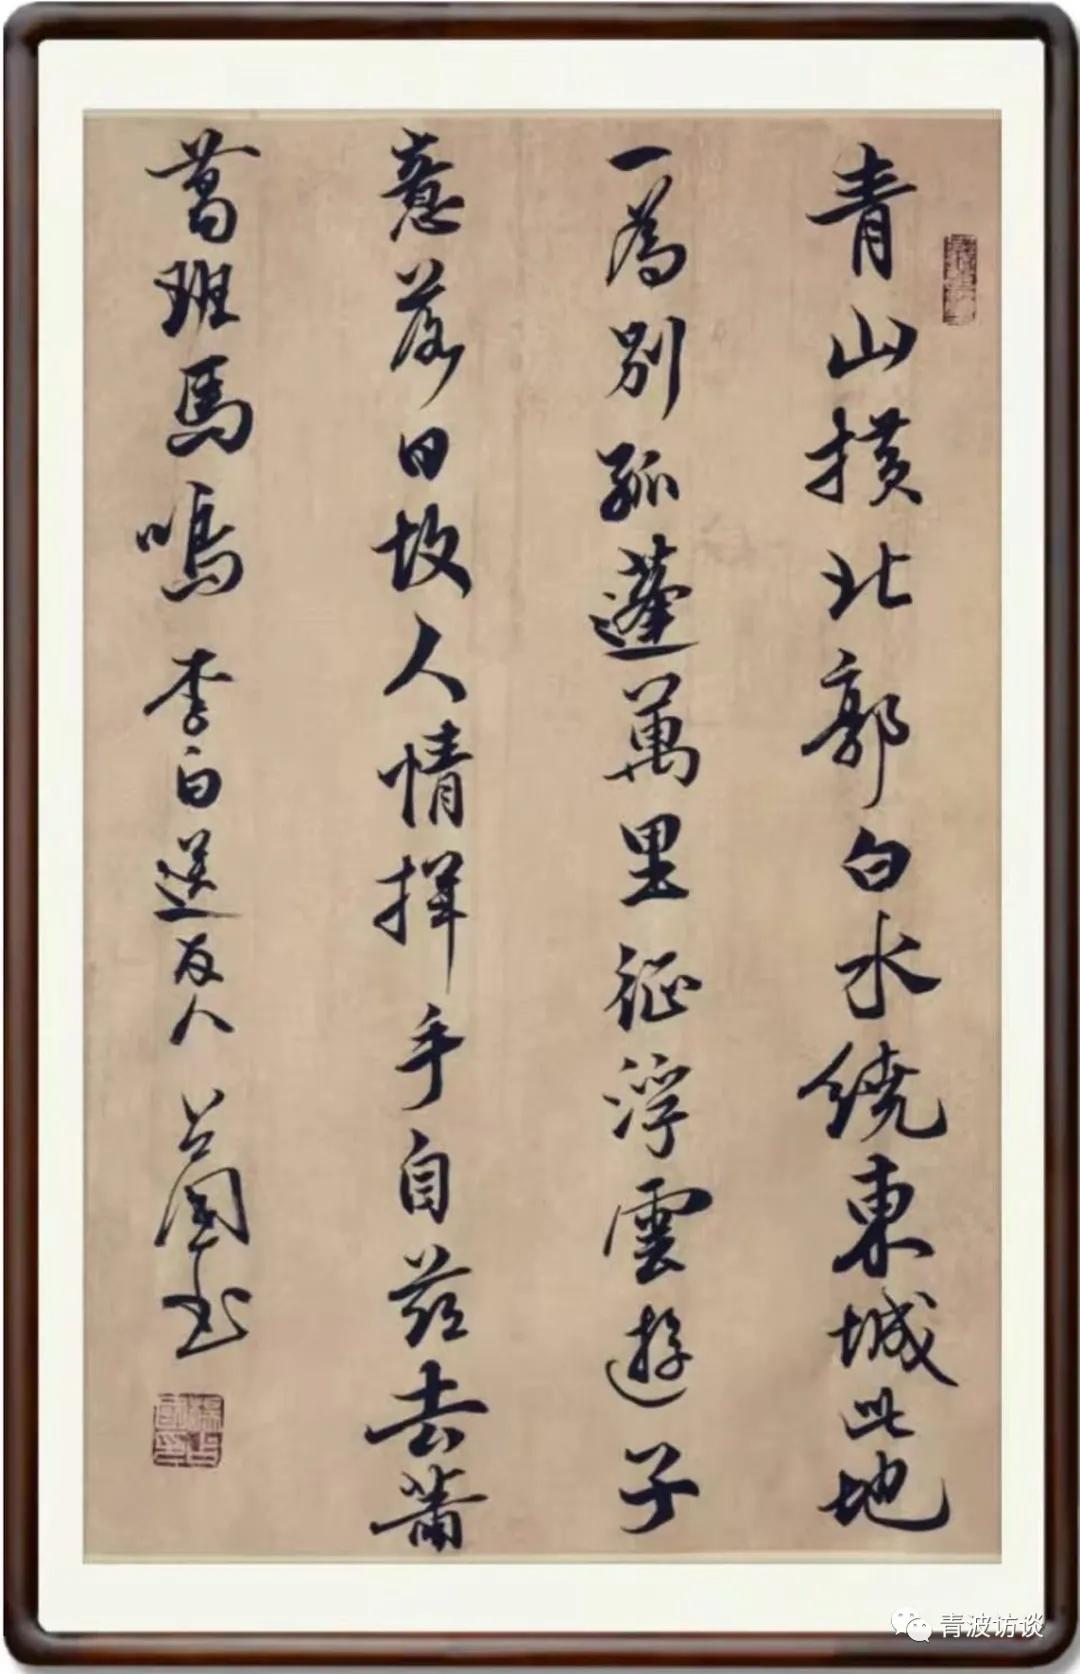 青山橫北郭白水繞東城此地
一為別孤蓬萬里征浮雲遊子
意落日故人情揮手自茲去蕭
班馬鳴 李白送友人 書
青波访谈